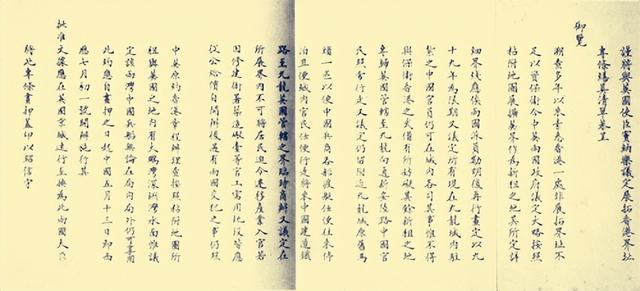 謹將與英國使臣竇納樂議定展拓香港界址
專條繕具清單恭呈
御覽
溯查多年以來素悉香港一處非展拓界址不
足以資保衛今中英兩國政府議定大略按照
粘附地圖展擴英界作為新租之地其所定詳
細界綫應俟兩國派員勘明後再行畫定以九
十九年為限期又議定所有現在九龍城內駐
紮之中國官員仍可在城內各司其事惟不得
與保衛香港之武備有所妨礙其餘新租之地
專歸英國管轄至九龍向通新安陸路中國官
民照常行走又議定仍留附近九龍城原舊馬
頭一區以便中國兵商各船渡艇任便往來停
泊且便城內官民任便行走將來中國建造鐵
路至九龍英國管轄之界臨時商辦又議定在
所展界內不可將居民迫令遷移產業入官若
因修建衙署築造礮臺等官工需用地段皆應
從公給價自開辦後遇有兩國交犯之事仍照
中英原約香港章程辦理查按照粘附地圖所
租與英國之地內有大鵬灣深洲灣水面惟議
定該兩灣中國兵船無論在局內局外仍可享用
此約應自畫押之日起中國五月十三日即西
曆七月初一號開辦施行其
批准文據應在英國京城速行互換為此兩國大臣
將此專條畫押蓋印以昭信守